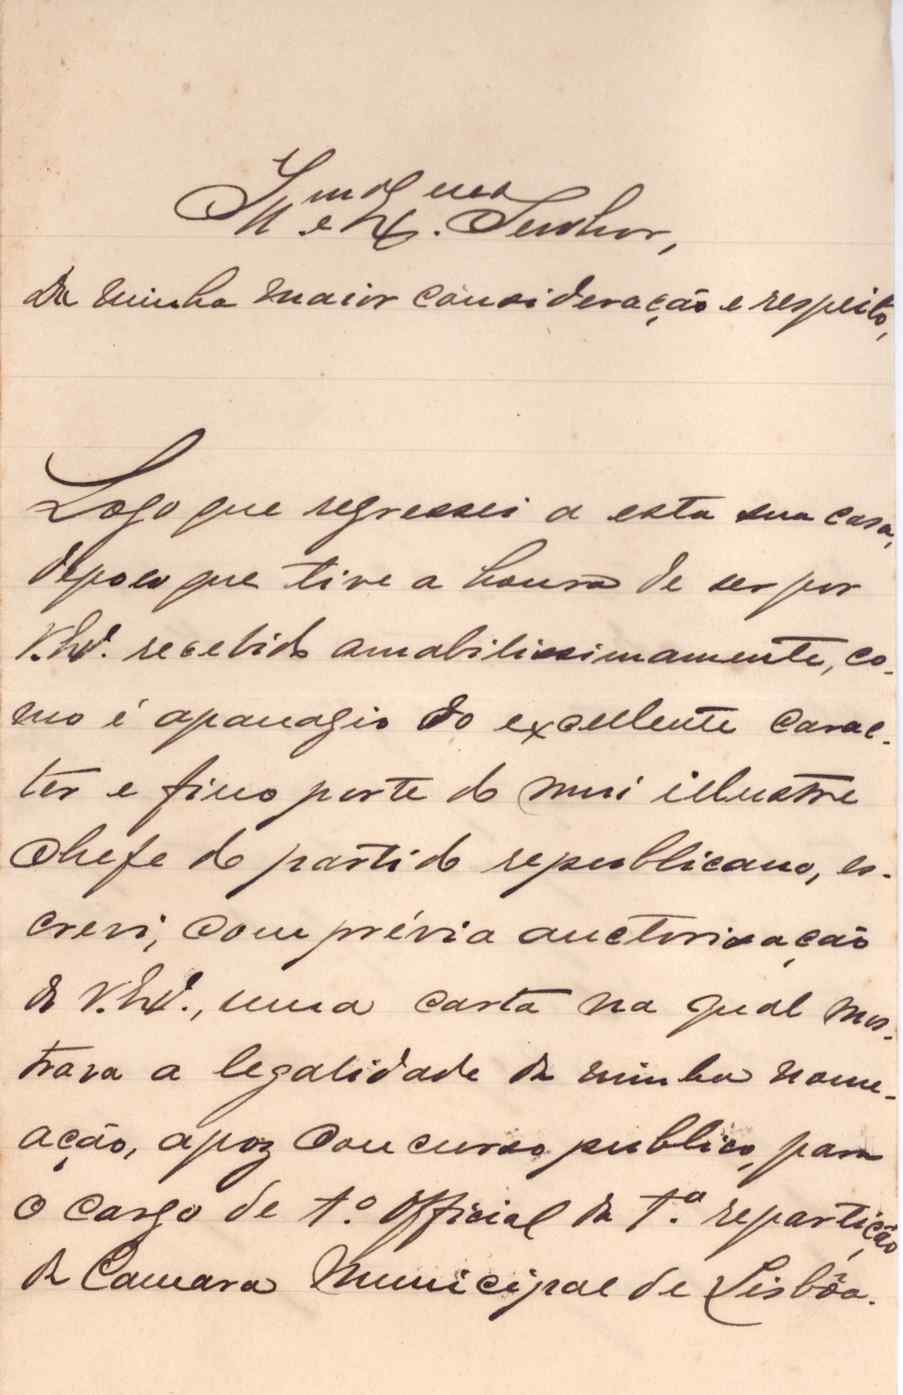 Ill.mo e Ex.mo Senhor,
da minha maior consideração e respeito,
Logo que regressei a esta sua casa,
depois que tive a honra de ser por
V. Ex.ª recebido amabilissimamente, co-
mo é apanagio do excellente carac-
ter e fino porte do mui illustre
Chefe do partido republicano, es-
crevi, com prévia auctorisação
de V. Ex.ª, uma carta na qual mos-
trava a legalidade da minha nome-
ação, apoz concurso publico, para
o cargo de 1.º official da 1.ª repartição
da Camara Municipal de Lisbôa.